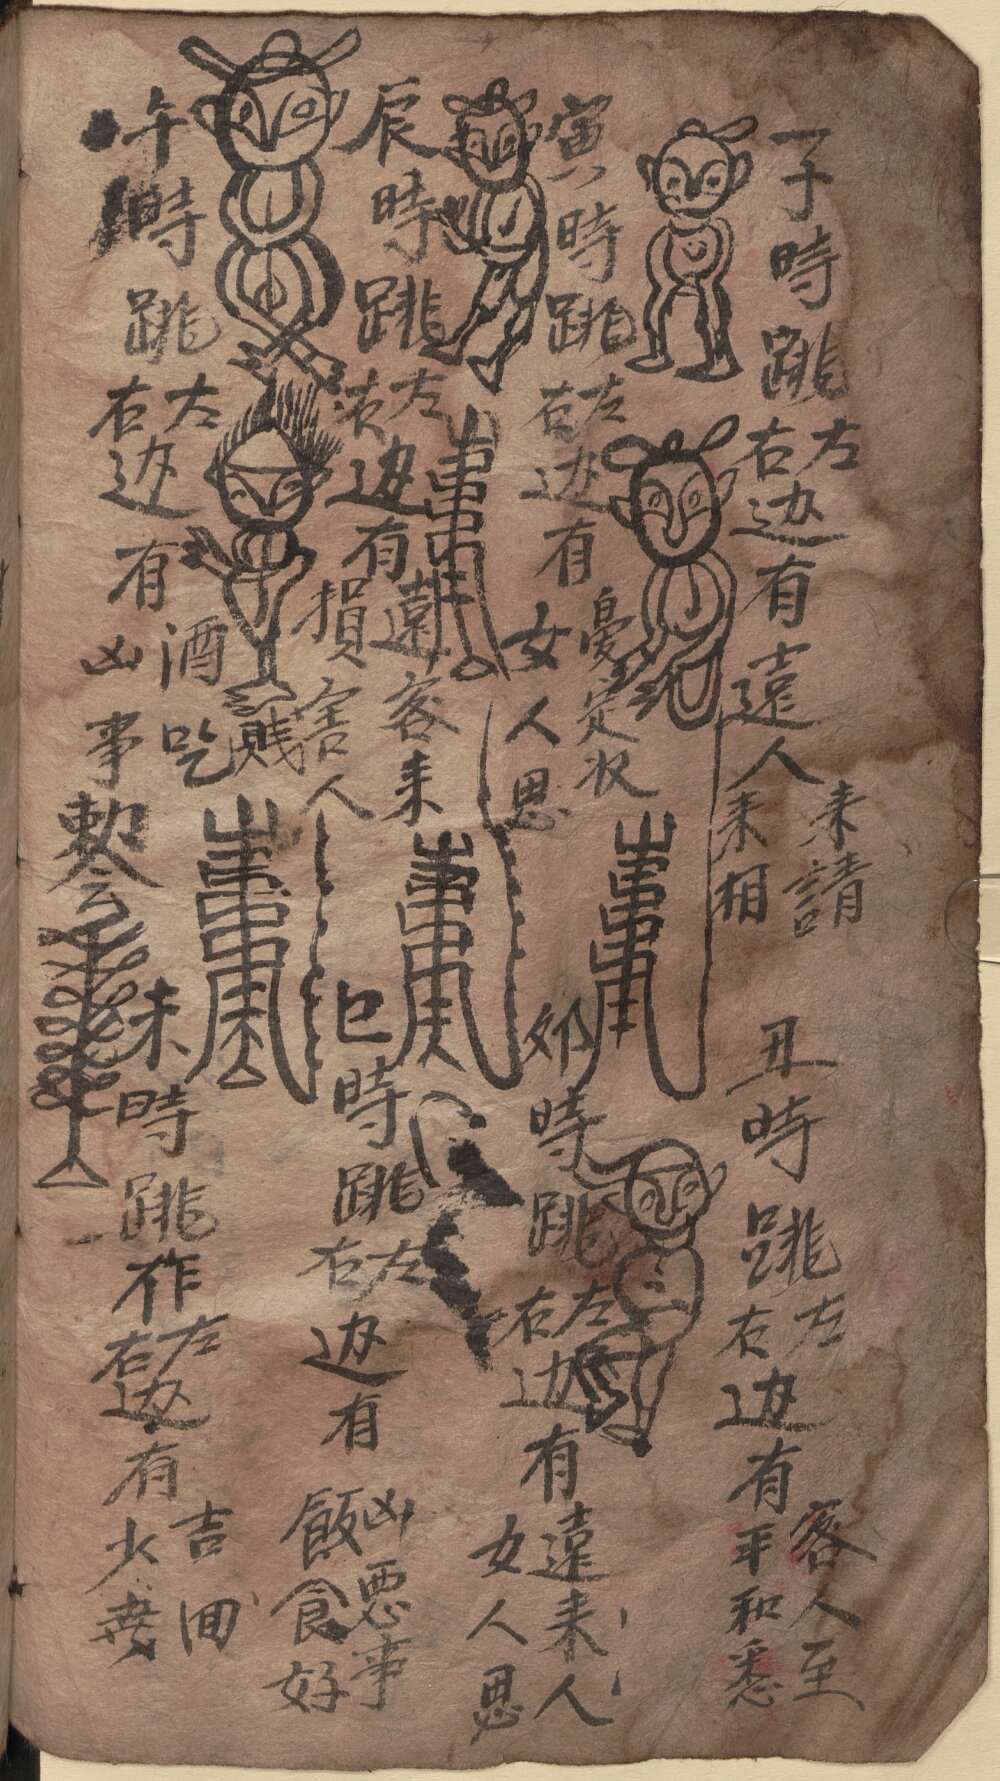 子時跳左右边有遠人來請來相
丑時跳左右边有客人至平和悉
寅時跳左右边有憂定女人思
卯時跳左右边有遠來人女人思
辰時跳左右边有遠客來損害人
巳時跳左右边有凶惡事飯食好
午時跳左右边有酒吃凶事
未時跳作左右边有吉回少
敕令